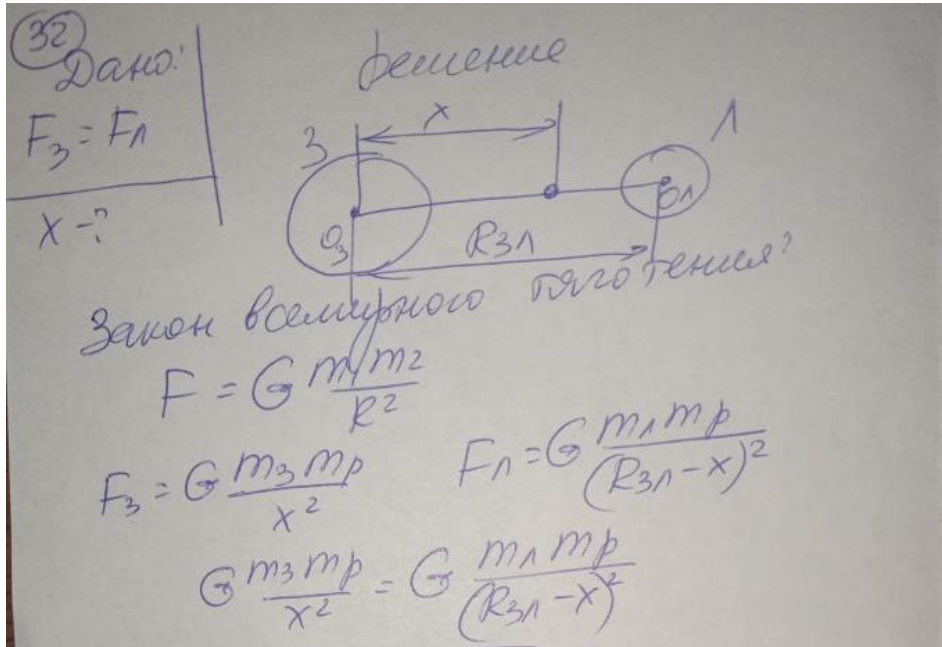 32
Дано:
Решение
F₃ = Fл
x - ?
З
x
Л
O₃
Oл
Rзл
Закон всемирного тяготения:
F = G m₁m₂/R²
Fз = G mз mр/x²
Fл = G mл mр/(Rзл - x)²
G mз mр/x² = G mл mр/(Rзл - x)²